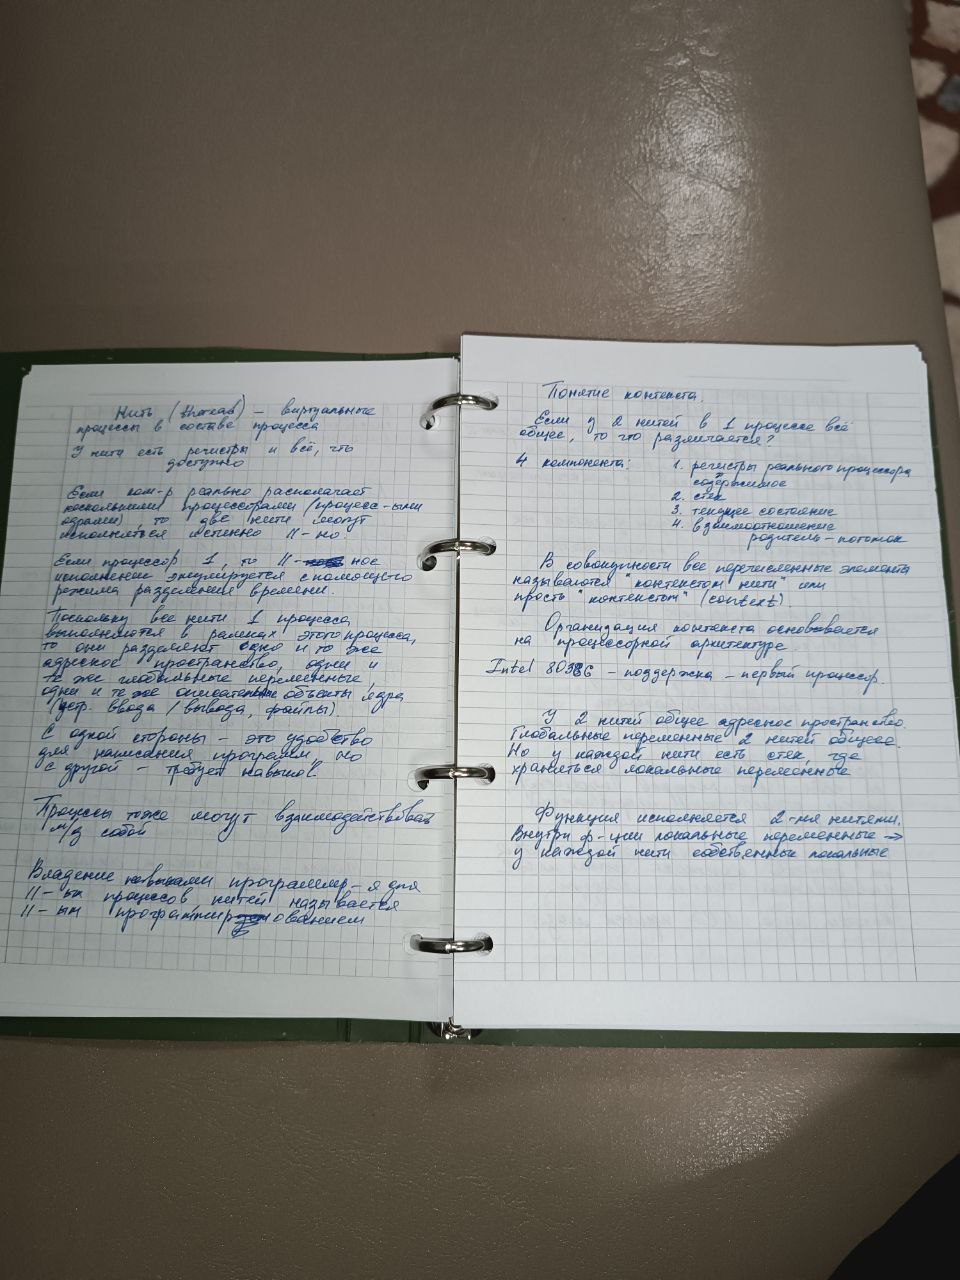 Нить (thread) – виртуальные
процессы в составе процесса
У нити есть регистры и всё, что
доступно
Если ком-р реально располагает
несколькими процессорами (процесс-ыми
ядрами), то две нити могут
исполняться истинно II-но.
Если процессор 1, то II- ное
исполнение эмулируется с помощью
режима разделения времени.
Поскольку все нити 1 процесса
выполняются в рамках этого процесса,
то они разделяют одно и то же
адресное пространство, одни и
те же глобальные переменные,
одни и те же объекты ядра
(устр. ввода / вывода, файлы).
С одной стороны – это удобство
для написания программ, но
с другой – требует навыков.
Процессы тоже могут взаимодействовать
м/д собой
Владение навыками программир-я для
II-ых процессов, нитей называется
II-ым программированием
Понятие контекста.
Если у 2 нитей в 1 процессе всё
общее, то что различается?
4 компонента: 1. регистры реального процессора
содержимое
2. стек
3. текущее состояние
4. взаимоотношение
родитель – потомок
В совокупности все перечисленные элементы
называются "контекстом нити" или
прость "контекстом" (context).
Организация контекста основывается
на процессорной архитектуре.
Intel 80386 – поддержка – первый процессор.
У 2 нитей общее адресное пространство.
Глобальные переменные 2 нитей общее.
Но у каждой нити есть стек, где
храняться локальные переменные
Функция исполняется 2-мя нитями.
Внутри ф-ции локальные переменные →
у каждой нити собственные локальные